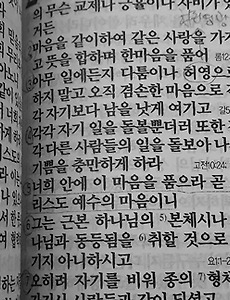 의 무슨 교제나 긍휼이나 자비가
거든
마음을 같이하여 같은 사랑을 가
고 뜻을 합하며 한마음을 품어
아무 일에든지 다툼이나 허영으
하지 말고 오직 겸손한 마음으로
각 자기보다 남을 낫게 여기고
각각 자기 일을 돌볼뿐더러 또한
각 다른 사람들의 일을 돌보아 나
기쁨을 충만하게 하라
고전10:24
너희 안에 이 마음을 품으라 곧
리스도 예수의 마음이니
그는 근본 하나님의 5)본체시나
나님과 동등됨을 6)취할 것으로
기지 아니하시고
요1:1-2
7 오히려 자기를 비워 종의 7)형